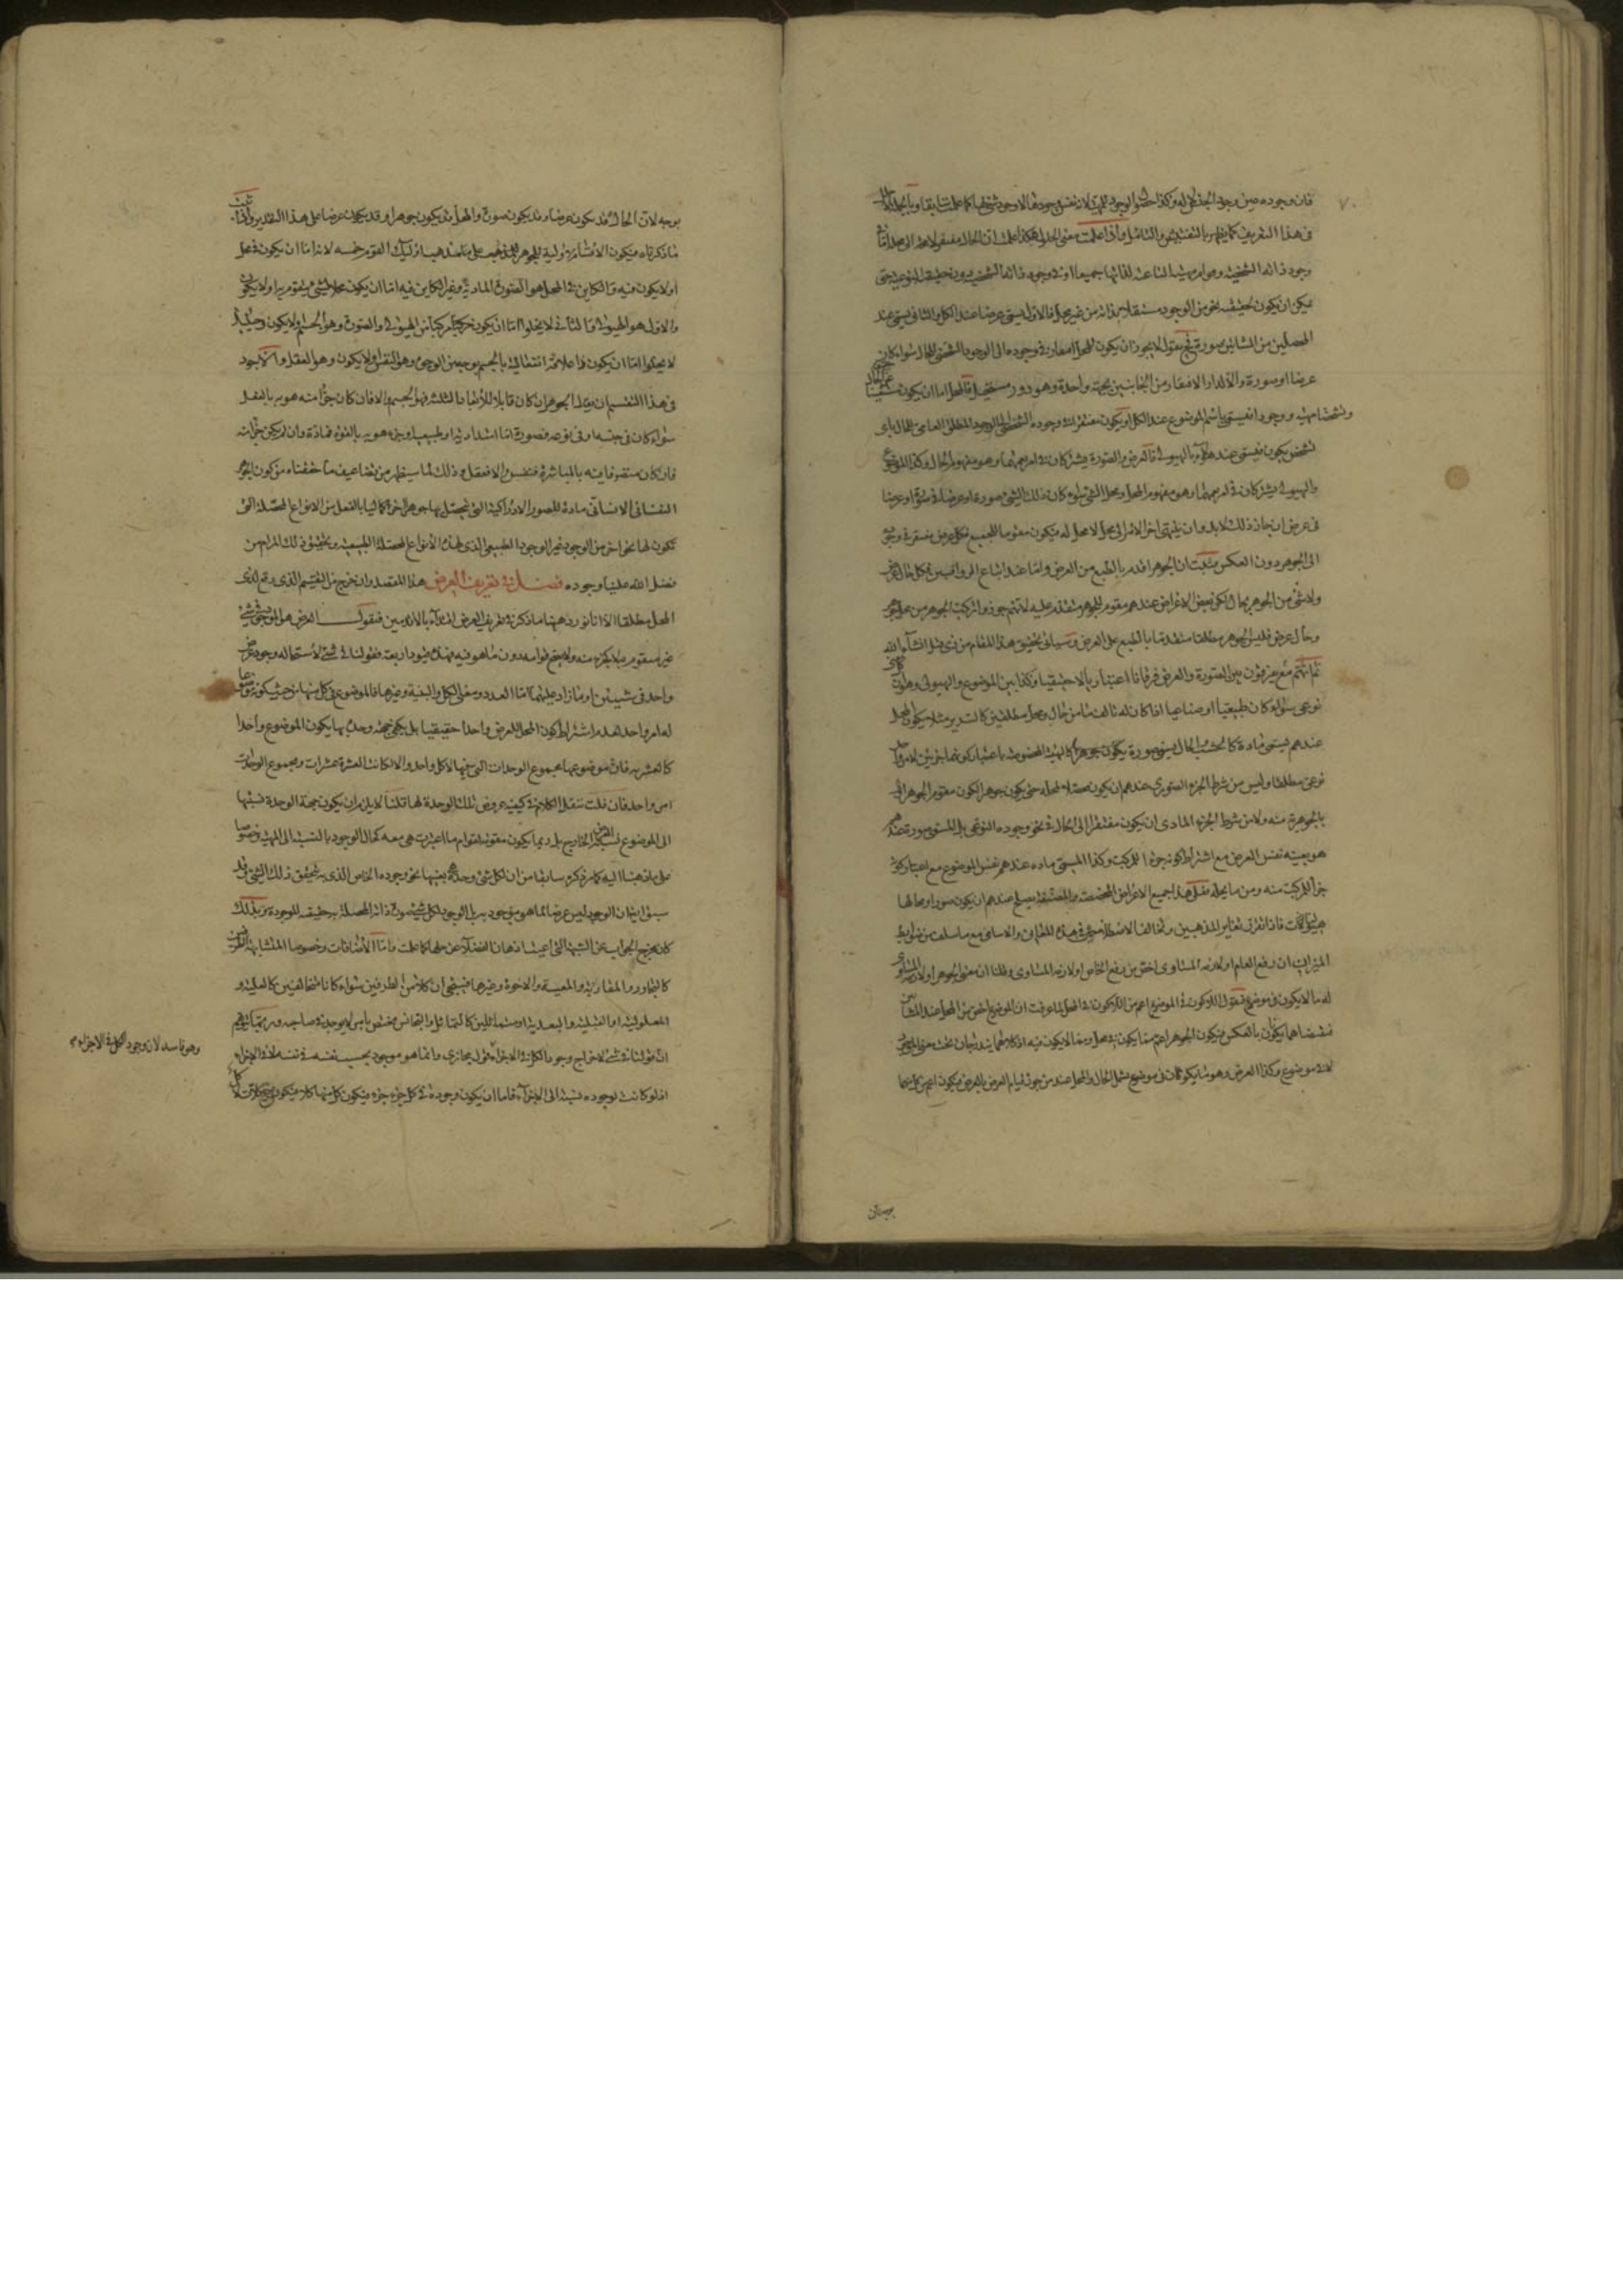 فان وجوده عين وجود الجنس له وكذا حال الوجود للمهية لانه نفس وجودها لا وجود شئ لها كما علمت سابقا وبالجملة
فى هذا التعريف كما يظهر بالتفتيش والتامل واذا علمت معنى الحلول هكذا علمت ان الحال مفتقر لا محالة الى محله اما فى
وجود ذاته الشخصية وقوام مهيته النوعية جميعا او فى وجود ذاته الشخصية دون حقيقته النوعية حتى
يمكن ان يكون لحقيقته نحو من الوجود مستقلا بذاته من غير محل فالاول يسمى عرضا عند الكل والثانى يسمى عند
المحصلين من المشائين صورة فح نقول لا يجوز ان يكون المحل المفارق وجوده الى الوجود الشخصى للحال سواء كان
عرضا او صورة والا لدار الافتقار من الجانبين بجهة واحدة وهو دور مستحيل فالمحل اما ان يكون مستغنيا عن الحال
وتشخصا مهية ووجودا فيسمى باسم الموضوع عند الكل او يكون مفتقرا فى وجوده الشخصى الى الوجود المطلق العامى للحال باى
تشخص يكون فيسمى عند هؤلاء بالهيولى فالعرض والصورة يشتركان فى امر يعمهما وهو مفهوم الحال وكذا الموضوع
والهيولى يشتركان فى امر يعمهما وهو مفهوم المحل ومحل الشئ سواء كان ذلك الشئ صورة او عرضا
فى عرض ان جاز ذلك لابد وان ينتهى اخر الامر الى محل لا محل له فيكون مقوما للجميع فكل عرض مفتقر فى وجوده
الى الجوهر دون العكس فثبت ان الجوهر اقدم بالطبع من العرض واما عند اتباع الرواقيين فكل حال عرض
ولا شئ من الجوهر بحال لكن بعض الاعراض عندهم مقوم للجوهر متقدم عليه لانهم جوزوا تركيب الجوهر من جوهر
وحال عرض فليس الجوهر مطلقا متقدما بالطبع على العرض وسياتى تحقيق هذا المقام من ذى قبل انشاء الله
ثم انهم مع يفرقون بين الصورة والعرض فرقانا اعتباريا لا حقيقيا وكذا بين الموضوع والهيولى وهو ان كل مركب
نوعى سواء كان طبيعيا او صناعيا اذا كان له تالف ما من حال ومحل مطلقين كالسرير مثلا يكون المحل
عندهم يسمى مادة كالخشب والحال يسمى صورة يكون جوهرا كالهيئة المخصوصة باعتبار كونهما جزئين لامر واحد
نوعى مطلقا وليس من شرط الجزء الصورى عندهم ان يكون محصلا لمحله حتى يكون جوهرا لكون مقوم الجوهر اولى
بالجوهرية منه ولا من شرط الجزء المادى ان يكون مفتقرا الى الحال فى نحو وجوده النوعى بل المسمى صورة عندهم
هو بعينه نفس العرض مع اشتراط كونه جزءا للمركب وكذا المسمى مادة عندهم نفس الموضوع مع اعتبار كونه
جزأ للمركب منه ومن ما يحله فعلى هذا جميع الاعراض المخصصة والمصنفة يصلح عندهم ان يكون صورا ومحالها
هيوليات فاذا تقرر تغاير المذهبين وتخالف الاصطلاحين فى هذه المعانى والاسامى مع ما سلف من ضوابط
الميزان ان رفع العام او لازمه المساوى اخص من رفع الخاص او لازمه المساوى وقلنا ان معنى الجوهر او لازمه المساوى
له ما لا يكون فى موضوع فنقول اللاكون فى الموضوع اعم من اللاكون فى المحل لما عرفت ان الموضوع اخص من المحل عند المشائين
فنقيضاهما يكونان بالعكس فيكون الجوهر اعم مما يكون فى محل ومما لا يكون فيه اذ كلاهما يندرجان تحت معنى الموجود
لا فى موضوع وكذا العرض وهو ما يكون كان فى موضوع يشمل الحال والمحل عند من جوز قيام العرض بالعرض فيكون اعم من كل منهما
بوجه لان الحال قد يكون عرضا وقد يكون صورة والمحل قد يكون جوهرا وقد يكون عرضا على هذا التقدير واذا ثبت
ما ذكرناه فيكون الاقسام الاولية للجوهر على ما هو مذهب اولئك القوم خمسة لانه اما ان يكون فى محل
او لا يكون فيه والكاين فى المحل هو الصورة المادية وغير الكاين فيه اما ان يكون محلا لشئ يتقوم به او لا يكون
والاول هو الهيولى والثانى لا يخلو اما ان يكون مركبا من الهيولى والصورة وهو الجسم او لا يكون وحينئذ
لا يخلو اما ان يكون ذا علاقة انفعالية بالجسم بوجه من الوجوه وهو النفس او لا يكون وهو العقل والاجود
فى هذا التقسيم ان يقال الجوهر ان كان قابلا للابعاد الثلثة فهو الجسم والا فان كان جزأ منه هو به بالفعل
سواء كان فى جنسه او فى نوعه فصورة اما امتدادية او طبيعية او جزء هو به بالقوة فمادة وان لم يكن جزأ منه
فان كان متصرفا فيه بالمباشرة فنفس والا فعقل وذلك لما سيظهر من تضاعيف ما حققناه من كون الجوهر
النفسانى الانسانى مادة للصور الادراكية التى يتحصل بها جوهرا اخر كماليا بالفعل من الانواع المحصلة التى
يكون لها نحو اخر من الوجود غير الوجود الطبيعى الذى لهذه الانواع المحصلة الطبيعية وتحقيق ذلك المرام من
فضل الله علينا وجوده فصل فى تعريف العرض هذا المقصد وان خرج من التقسيم الذى وقع لذى
المحل مطلقا الا انا نورد ههنا ما ذكر فى تعريف العرض اقتداء بالاقدمين فنقول العرض هو الموجود فى شئ
غير متقوم به لا كجزء منه ولا يصح قوامه دون ما هو فيه فهذه قيود اربعة فقولنا فى شئ لاستحالة وجود عرض
واحد فى شيئين او ما زاد عليهما اما العدد ومعنى الكل والبقية وغيرها فالموضوع فى كل منها من حيث كونه موضوعا
له امر واحد لعدم اشتراط كون المحل للعرض واحدا حقيقيا بل يكفى جهة وحدة بها يكون الموضوع واحدا
كالعشرية فان موضوعها مجموع الوحدات التى فيها لا كل واحد والا لكانت العشرة عشرات ومجموع الوحدات
امر واحد فان قلت ننقل الكلام فى كيفية عروض تلك الوحدة لها قلنا لا يلزم ان يكون جهة الوحدة نسبتها
الى الموضوع نسبة العرض الخارج بل ربما يكون مقومة لقوام ما اعتبرت هى معه كحال الوجود بالنسبة الى المهية وخصوصا
على ما ذهبنا اليه كما مر ذكره سابقا من ان لكل شئ وحدة هى بعينها نحو وجوده الخاص الذى به تحقق ذلك الشئ وقد
سبق ايضا ان الوجود ليس عرضا لما هو موجود به بل الوجود لكل شئ صورة ذاته المحصلة به حقيقته الموجودة وبذلك
كان يخرج الجواب عن الشبهة التى اعيت اذهان الفضلاء عن حلها كما علمت واما الاضافات وخصوصا المتشابهة الطرفين
كالتجاور والمقاربة والمعية والاخوة وغيرها فينبغى ان كلا من الطرفين سواء كانا متخالفين كالعلية و
المعلولية او القبلية والبعدية او متماثلين كالتماثل والتجانس مختص بامر لا يوجد فى صاحبه وربما يتوهم
ان قولنا فى شئ لاخراج وجود الكل فى الاجزاء فهو قول مجازى وانما هو موجود بحسب نفسه فى نفسه لا فى الاجزاء
اذ لو كانت لوجوده نسبة الى الاجزاء فاما ان يكون وجوده فى كل جزء جزء فيكون كل منها كلا فيكون
وهو فاسد لان وجود الكل فى الاجزاء